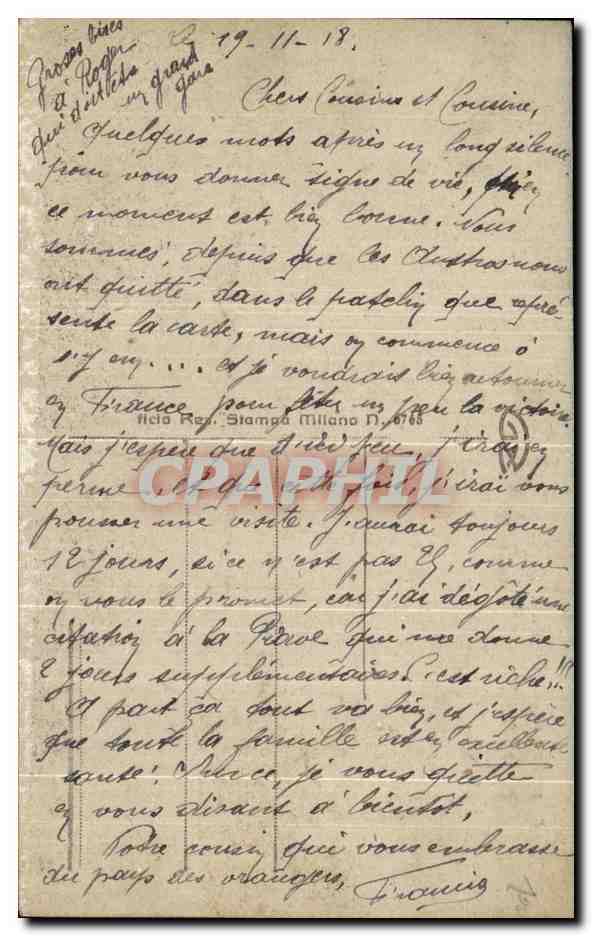 Groses bises
à Roger
qui doit être
un grand
gars
Le 19-11-18.
Chers Cousins et Cousine,
Quelques mots après un long silence
pour vous donner signe de vie, qui en
ce moment est bien bonne. Nous
sommes, depuis que les Austros nous
ont quitté, dans le patelin que repré-
sente la carte, mais on commence à
s'y em.... et je voudrais bien retourner
en France pour fêter un peu la victoire.
ficio Rev. Stampa Milano N. 6765
Mais j'espère que d'ici peu, j'irai en
perme, et que cette fois, j'irai vous
pousser une visite. J'aurai toujours
12 jours, si ce n'est pas 22, comme
on vous le promet, car j'ai dégôté une
citation à la Piave qui me donne
2 jours supplémentaires. C'est riche!!!
A part ça tout va bien, et j'espère
que toute la famille est en excellente
santé. Sur ce, je vous quitte
en vous disant à bientôt,
Votre cousin qui vous embrasse
du pays des orangers,
Francis
CPAPHIL